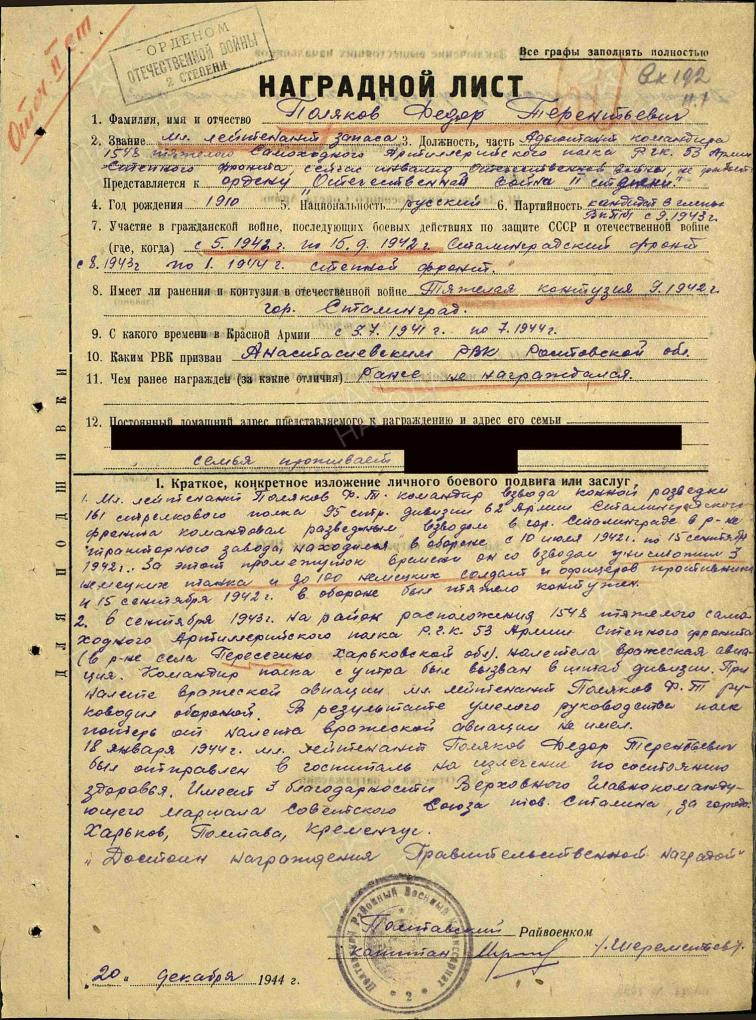 Отеч. II ст
ОРДЕНОМ
ОТЕЧЕСТВЕННОЙ ВОЙНЫ
2 СТЕПЕНИ
Все графы заполнять полностью
Вх 192
НАГРАДНОЙ ЛИСТ
1. Фамилия, имя и отчество Поляков Федор Терентьевич
2. Звание мл. лейтенант запаса 3. Должность, часть Адъютант командира
1548 тяжелого Самоходного Артиллерийского полка Р.Г.К. 53 Армии
Степного фронта, сейчас инвалид Отечественной войны, не работает
Представляется к ордену "Отечественной война II степени."
4. Год рождения 1910 5. Национальность русский 6. Партийность кандидат в члены
ВКПб с 9.1943 г.
7. Участие в гражданской войне, последующих боевых действиях по защите СССР и отечественной войне
(где, когда) с 5.1942 г. по 15.9.1942 г. Сталинградский фронт
с 8.1943г по 1.1944 г. степной фронт.
8. Имеет ли ранения и контузии в отечественной войне Тяжелая контузия 9.1942 г.
гор. Сталинград.
9. С какого времени в Красной Армии с 9.7.1941 г. по 7.1944 г.
10. Каким РВК призван Анастасиевским РВК Ростовской обл.
11. Чем ранее награжден (за какие отличия) Ранее не награждался.
12. Постоянный домашний адрес представляемого к награждению и адрес его семьи
семья проживает
I. Краткое, конкретное изложение личного боевого подвига или заслуг
1. Мл. лейтенант Поляков Ф. Т. командир взвода конной разведки
161 стрелкового полка 95 стр. дивизии 62 Армии Сталинградского
фронта командовал разведным взводом в гор. Сталинграде в р-не
тракторного завода, находился в обороне с 10 июля 1942 г. по 15 сентября
1942 г. За этот промежуток времени он со взводом уничтожил 3
немецких танка и до 100 немецких солдат и офицеров противника
и 15 сентября 1942 г. в обороне был тяжело контужен.
2. В сентября 1943 г. на район расположения 1548 тяжелого само
ходного Артиллерийского полка Р.Г.К. 53 Армии Степного фронта
(в р-не села Пересечино Харьковской обл). налетела вражеская авиа
ция. Командир полка с утра был вызван в штаб дивизии. При
налете вражеской авиации мл. лейтенант Поляков Ф. Т ру
ководил обороной. В результате умелого руководства полк
потерь от налета вражеской авиации не имел.
18 января 1944 г. мл. лейтенант Поляков Федор Терентьевич
был отправлен в госпиталь на излечение по состоянию
здоровья. Имеет 3 благодарности Верховного Главнокоманду
ющего Маршала Советского Союза тов. Сталина, за города:
Харьков, Полтава, Кременчуг.
"Достоин награждения Правительственной наградой"
Полтавский Райвоенком
капитан /Шереметьев/
"20" декабря 1944 г.
Районный Военный Комиссариат
2
ДЛЯ ПОДШИВКИ